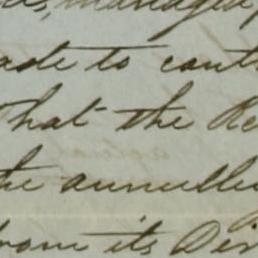 managed
ade to cont
That the Re
the annulle
from its Dir